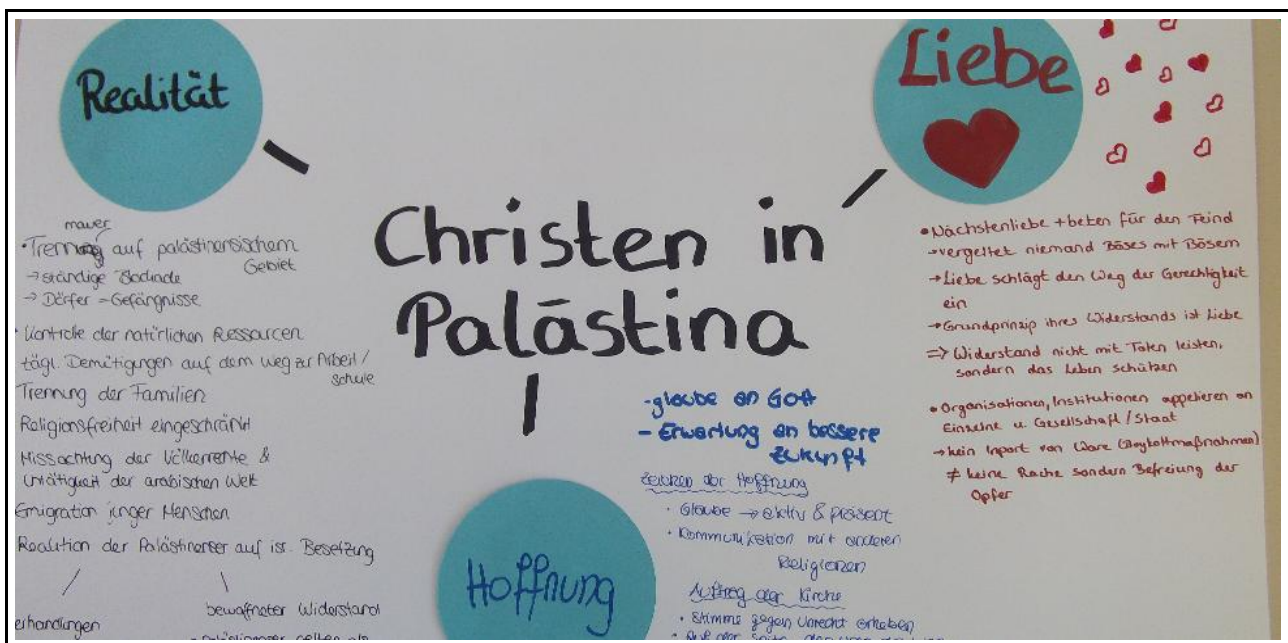 Realität
mauer
• Trennung auf palästinensischem
Gebiet
→ ständige
→ Dörfer = Gefängnisse
• Kontrolle der natürlichen Ressourcen
tägl. Demütigungen auf dem Weg zur Arbeit /
Schule
Trennung der Familien
Religionsfreiheit eingeschränkt
Missachtung der &
Untätigkeit der arabischen Welt
Emigration junger Menschen
Reaktion der Palästinenser auf isr. Besetzung
erhandlungen
bewaffneter Widerstand
Christen in
Palästina
Liebe
• Nächstenliebe + beten für den Feind
→ vergeltet niemand Böses mit Bösem
→ Liebe schlägt den Weg der Gerechtigkeit
ein
→ Grundprinzip ihres Widerstands ist Liebe
=> Widerstand nicht mit Toten leisten,
sondern das Leben schützen
• Organisationen, Institutionen appelieren an
Einzelne u. Gesellschaft / Staat
→ kein Inport von Ware (Boykottmaßnahmen)
≠ keine Rache sondern Befreiung der
Opfer
Hoffnung
- glaube an GOtt
- Erwartung an bessere
Zukunft
Zeichen der Hoffnung
• Glaube → aktiv & präsent
• Kommunikation mit anderen
Religionen
Auftrag der Kirche
• Stimme gegen Unrecht erheben